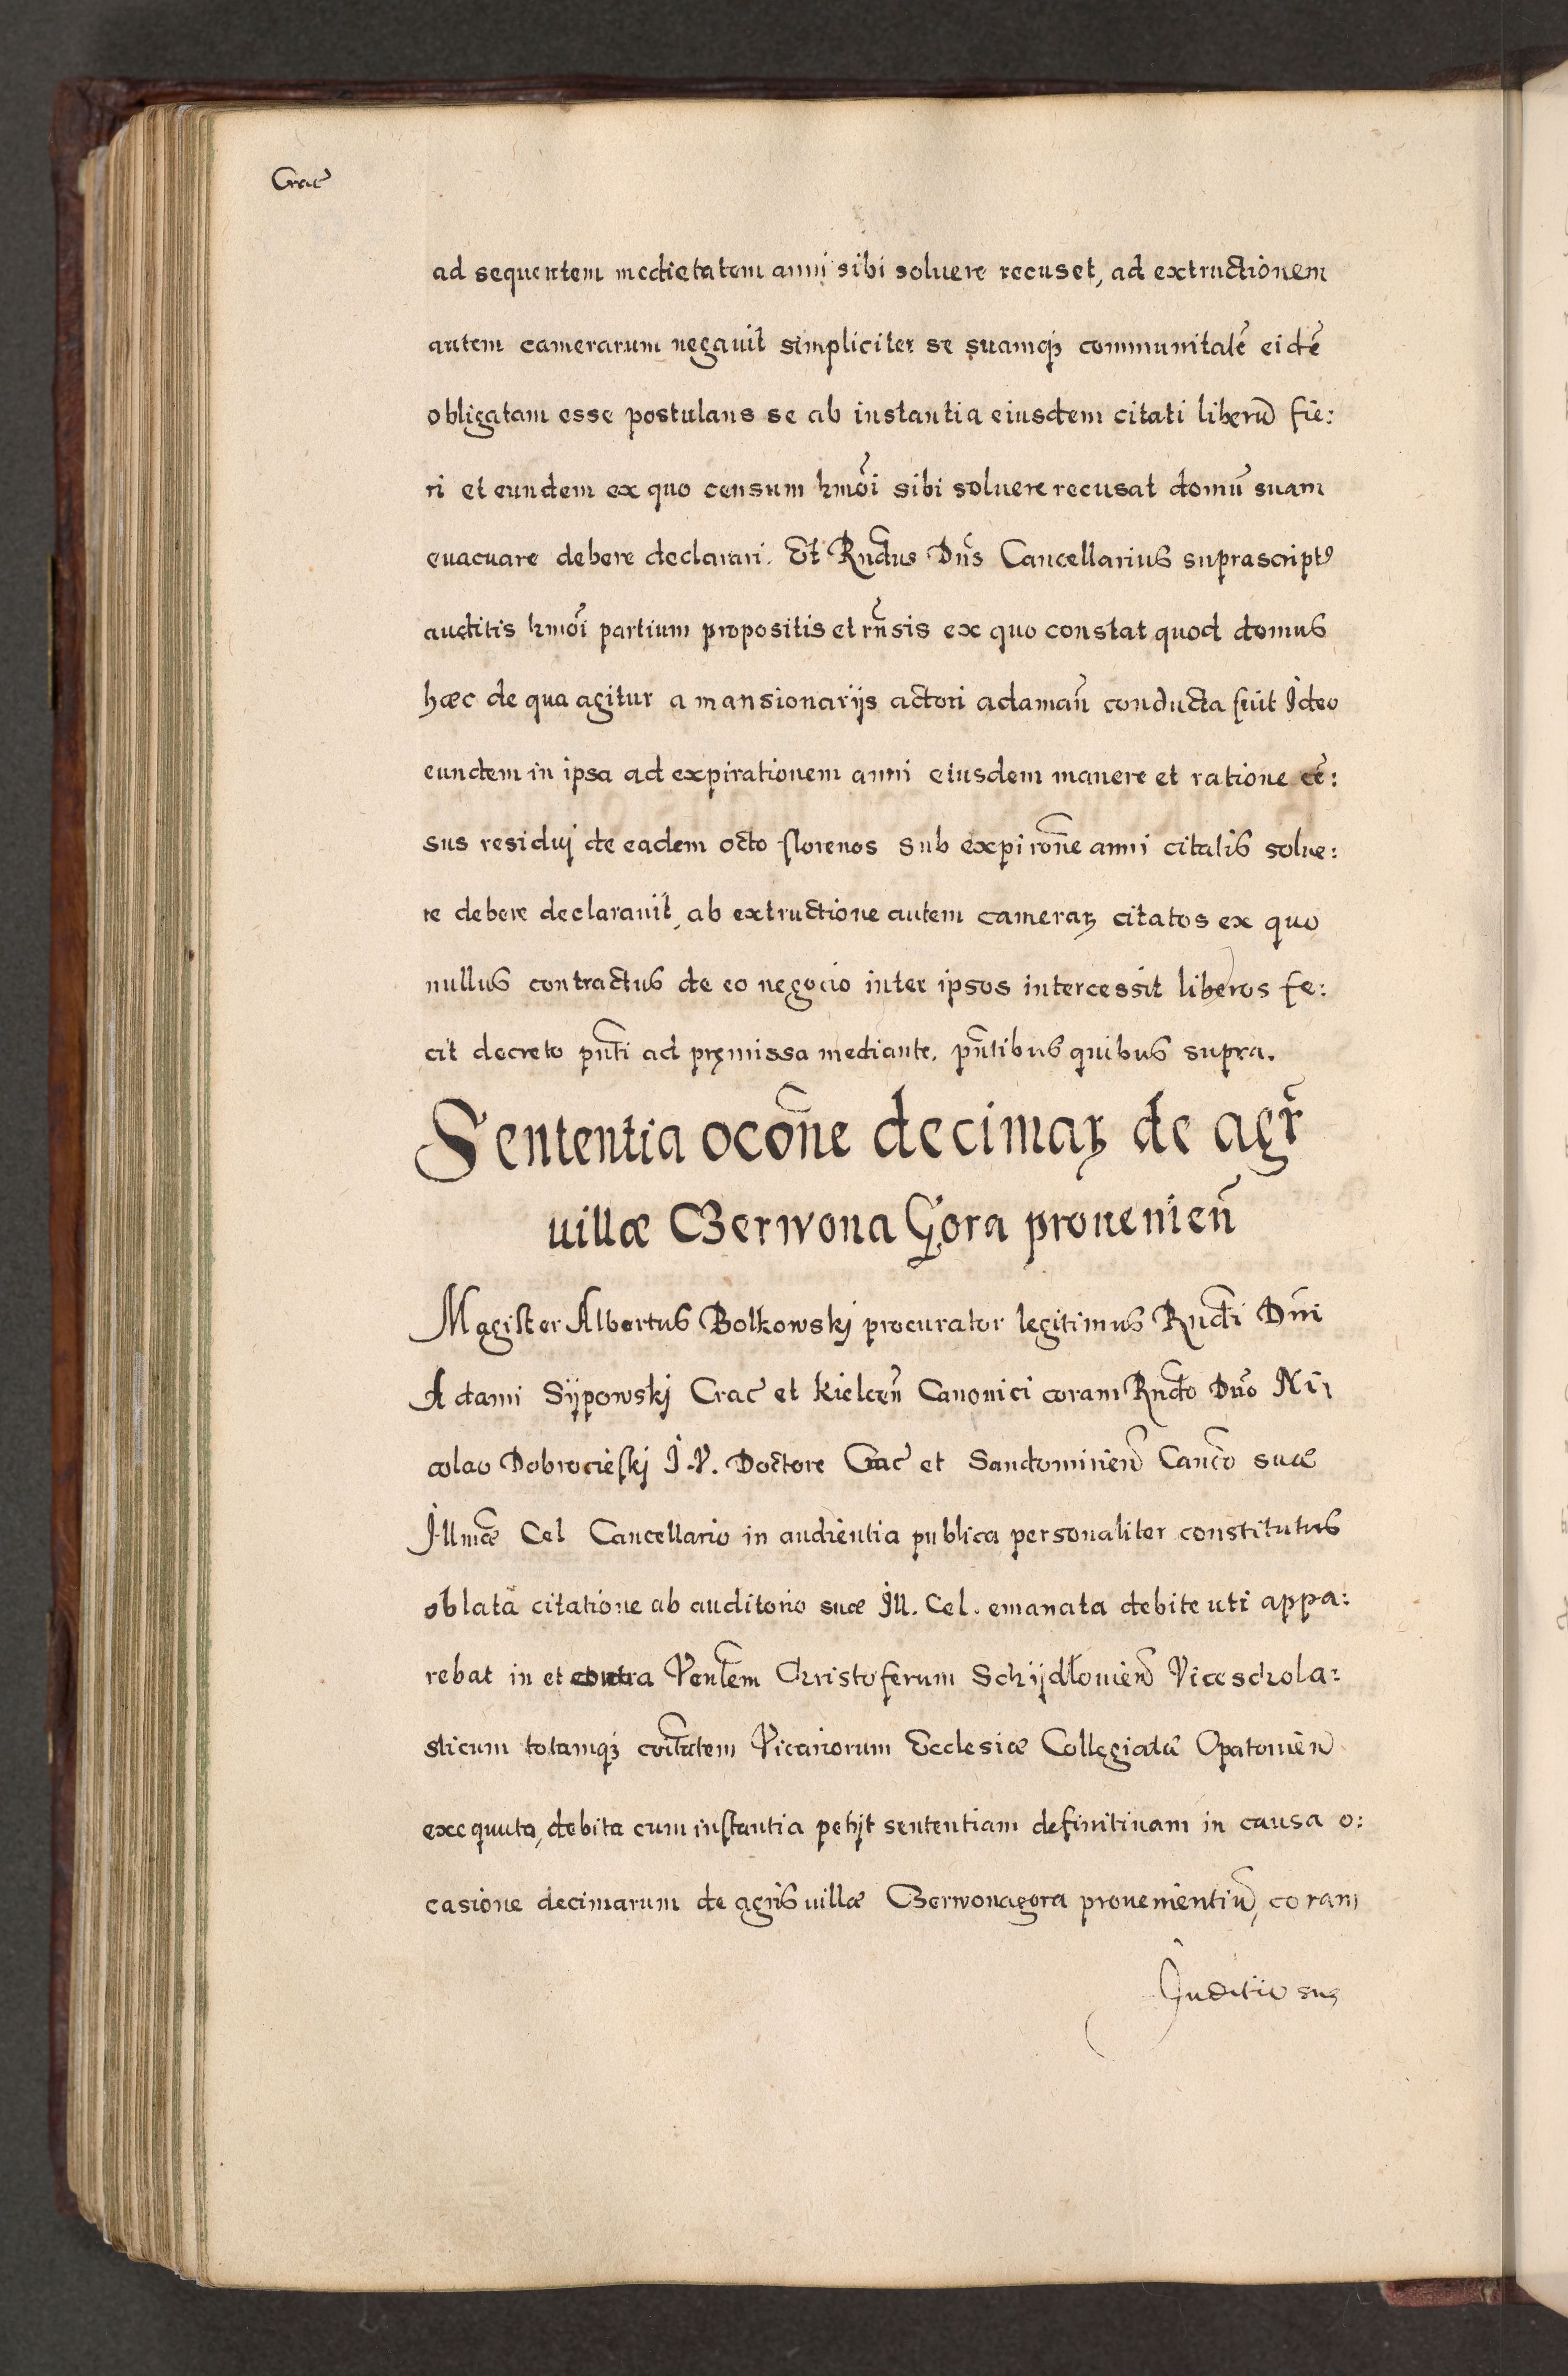 Crac̃
ad sequentem medietatem anni sibi soluere recuset, ad extructionem
autem camerarum negauit simpliciter se suamqȝ communitatẽ eidẽ
obligatam esse postulans se ab instantia eiusdem citati liberũ fie:
ri et eundem ex quo censum hmõi sibi soluere recusat domũ suam
euacuare debere declarari. Et Rñdus Dñs Cancellarius suprascriptꝰ
auditis hmõi partium propositis et rñsis ex quo constat quod domus
hæc de qua agitur a mansionarijs actori ad annũ conducta sit Ideo
eundem in ipsa ad expirationem anni eiusdem manere et ratione cẽ:
sus residuj de eadem octo florenos sub expirõne anni citatis solue:
re debere declarauit, ab extructione autem cameraꝝ citatos ex quo
nullus contractus de eo negocio inter ipsos intercessit liberos fe:
cit decreto pñti ad pręmissa mediante. pñtibus quibus supra.
Sententia occõne decimaꝝ de agr̃
uillæ Czerwona Gora prouenieñ
Magister Albertus Bolkowskj procurator legitimus Rñdi Dñi
Adami Sijpowskj Crac̃ et Kielceñ Canonici coram Rñdo Dño Ni:
colao Dobrocieskj I.V. Doctore Crac̃ et Sandomirieñ Canc̃o suæ
Illmæ̃ Cel Cancellario in audientia publica personaliter constitutus
oblata citatione ab auditorio suæ Ill. Cel. emanata debite uti appa:
rebat in et contra Venłem Christoferum Schijdłouieñ Viceschola:
sticum totamqȝ cõitatem Vicariorum Ecclesiæ Collegiatæ Opatouieñ
exequuta, debita cum instantia petijt sententiam definitiuam in causa o:
casione decimarum de agris uillæ Czerwonagora prouenientiũ, coram
Juditio suę